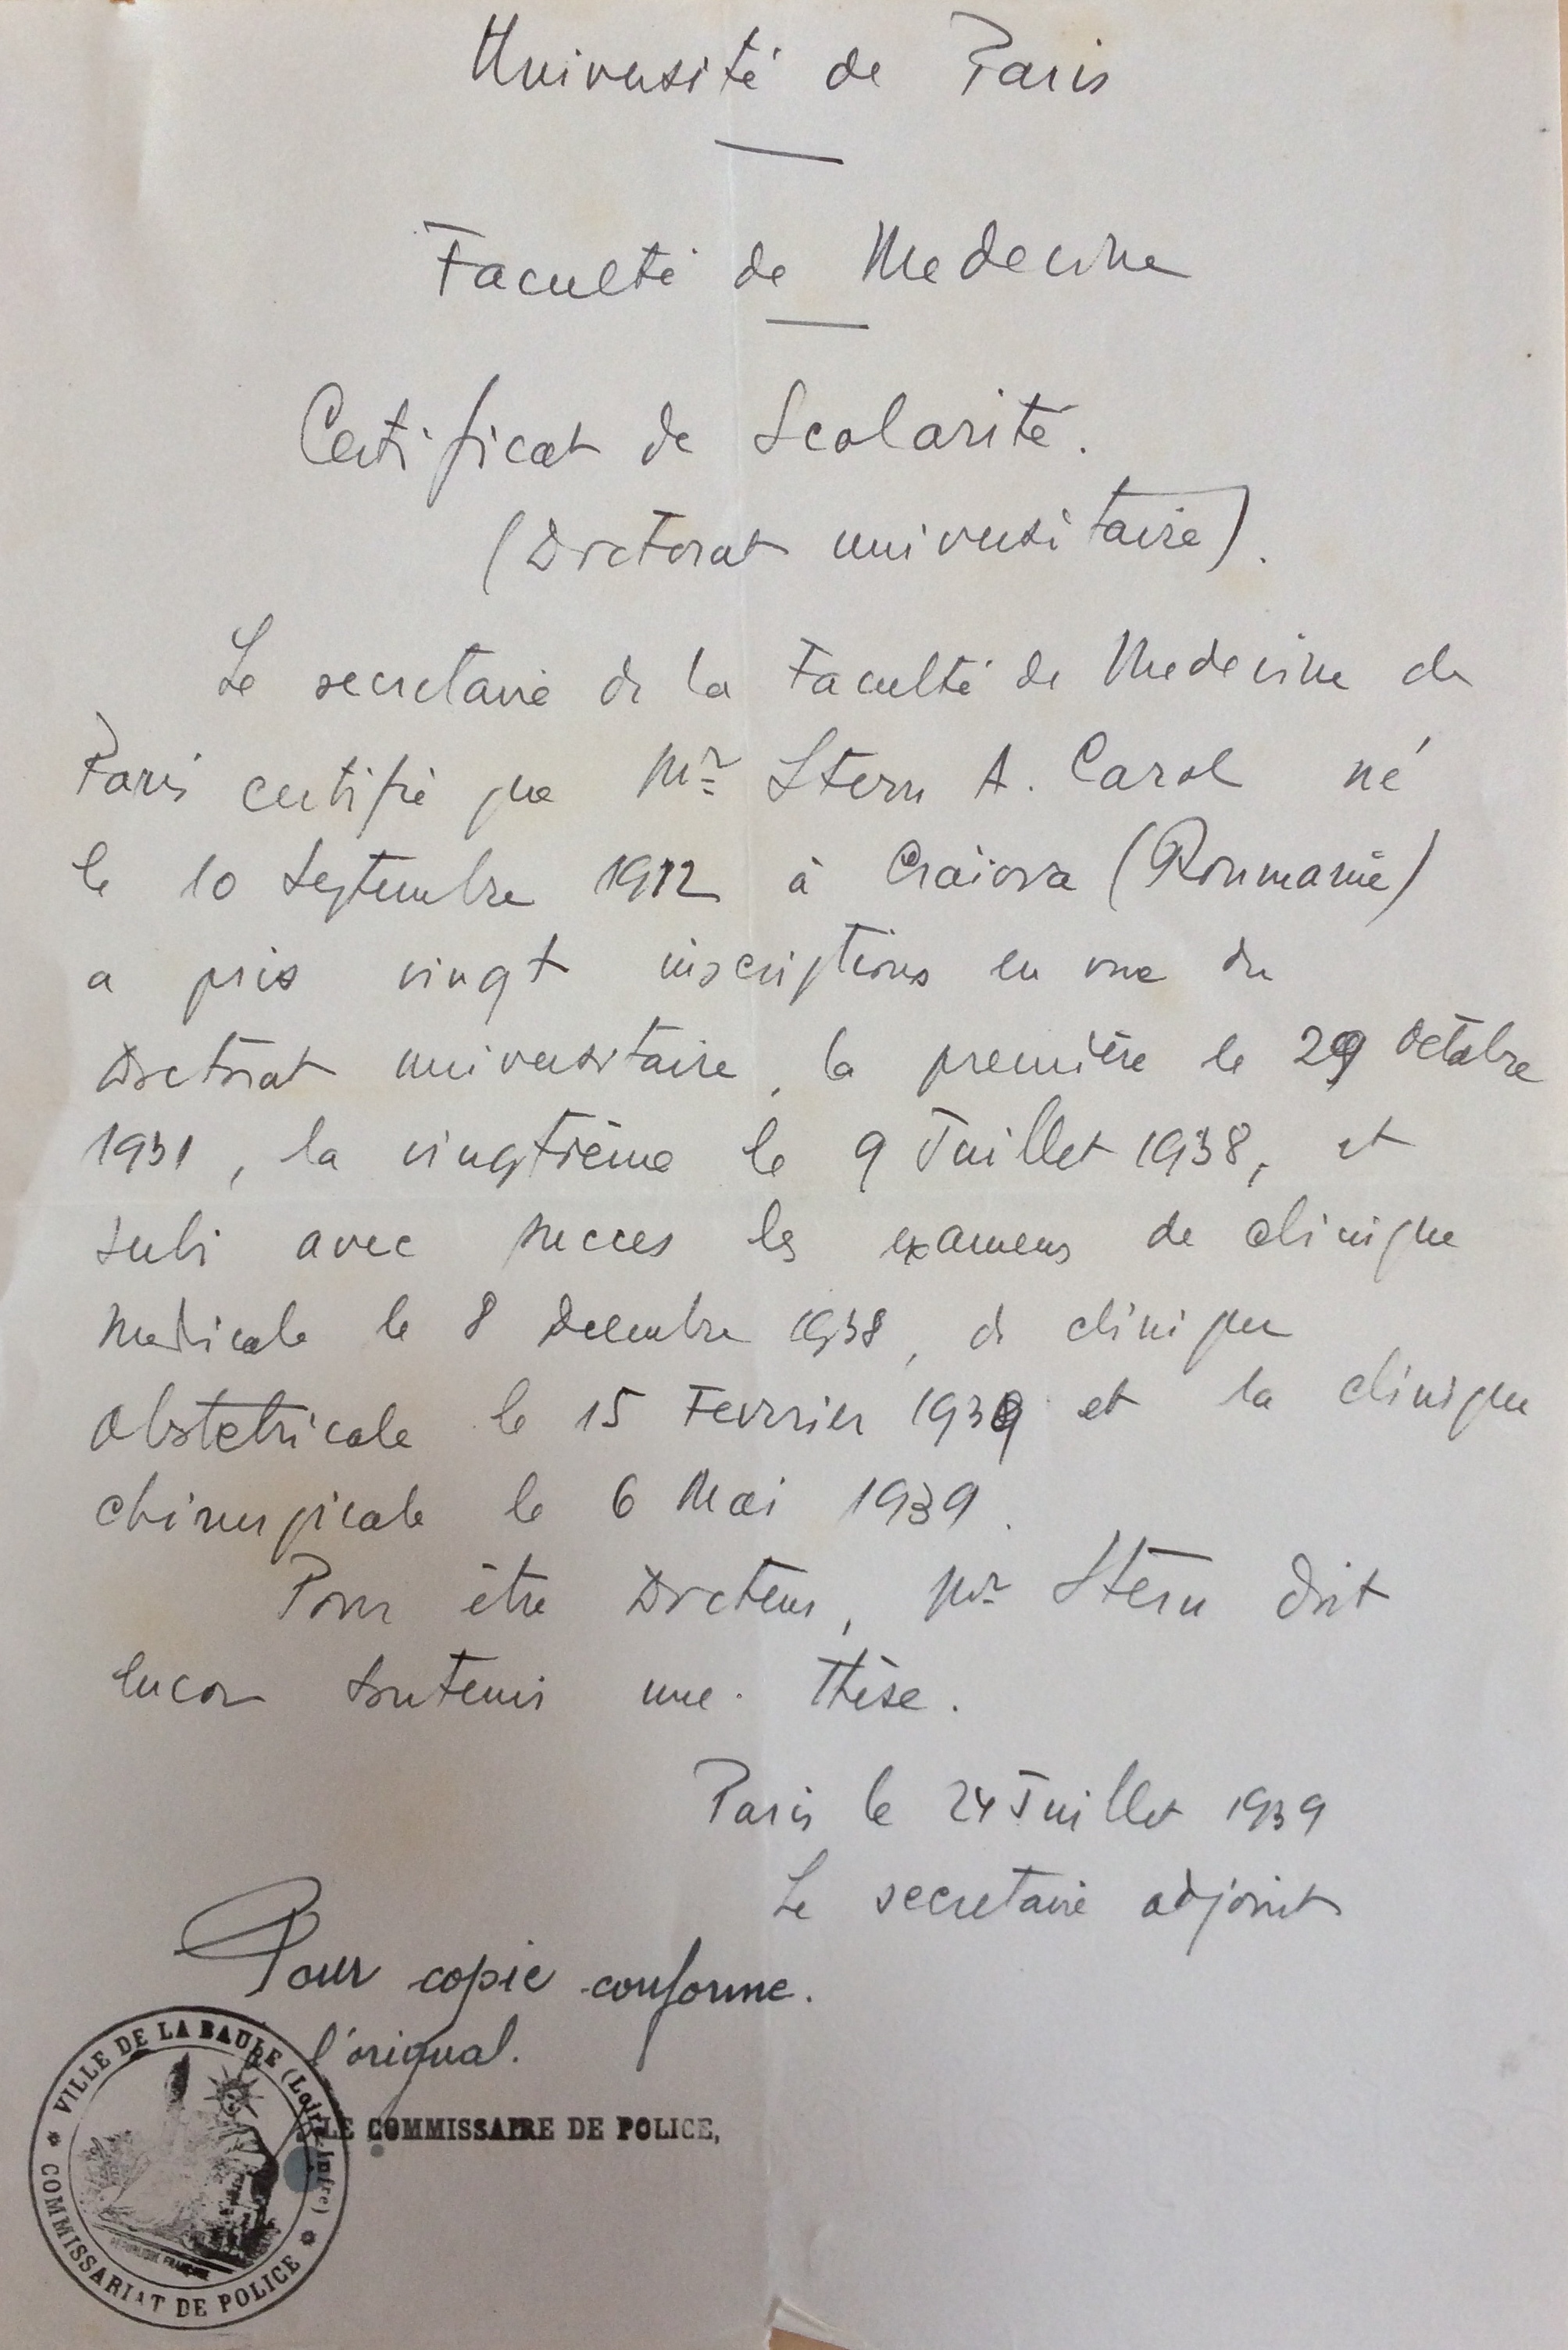 Université de Paris
Faculté de Medecine
Certificat de Scolarité.
(Doctorat universitaire).
Le secretaire de la Faculté de Medecine de
Paris certifie que Mr Stern A. Carol né
le 10 Septembre 1912 à Craiova (Roumanie)
a pris vingt inscriptions en vue du
Doctorat universitaire, la première le 29 Octobre
1931, la vingtième le 9 Juillet 1938, et
subi avec succes les examens de clinique
Medicale le 8 Decembre 1938, de clinique
Obstetricale le 15 Fevrier 1939 et la clinique
chirurgicale le 6 Mai 1939.
Pour être Docteur, Mr Stern doit
encor soutenir une thèse.
Paris le 24 Juillet 1939
Le secretaire adjoint
Pour copie conforme.
l'original.
LE COMMISSAIRE DE POLICE,
VILLE DE LA BAULE (Loire-Infre)
COMMISSARIAT DE POLICE
REPUBLIQUE FRANÇAISE